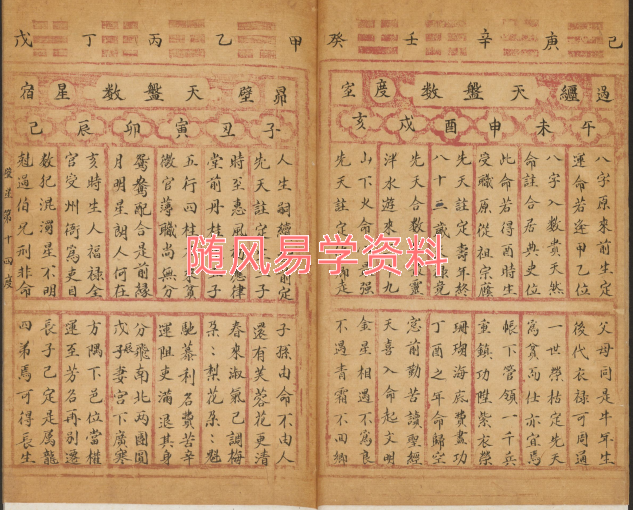 己 庚 辛 壬 癸
過 纏 天盤數 度 室
午 未 申 酉 戌 亥
八字原來前生定
運命若逢甲乙位
八字入數貴天然
命註合居典史位
此命若得酉時生
受職原從祖宗廕
先天註定壽年終
八十三歲 竟
先天合數 靈
泮水遊來 九
山下火命 強
先天註定 走
父母同是牛年生
後代衣祿可周通
一世榮枯定先天
為仕亦宜為
帳下管領一千兵
重鎮功陞紫衣榮
珊瑚海底費盡功
丁酉之年命歸空
窓前勤苦讀聖經
天喜入命起文明
金星相遇不為良
不遇青霜不回鄉
甲 乙 丙 丁 戊
昴 壁 天盤數 星 宿
子 丑 寅 卯 辰 己
人生嗣 前定
先天註定 子
時至惠風 律
堂前丹桂 子
五行四柱 貧
微官薄職尚無分
鴛鴦配合是前緣
月明星朗人何在
亥時生人福祿全
官受州衙寫吏目
數犯混濁星不明
魁過伯兄刑非命
子孫由命不由人
還有芙蓉花更清
春來淑氣已調梅
朶:梨花朶:魁
馳慕利名費苦辛
運阻吏滿退其身
分飛南北兩團圓
戊子妻宮下廣寒
方隅下邑位當權
運至芳名再別遷
長子已定是屬龍
四弟焉可得長生
星第十四度
随风易学资料